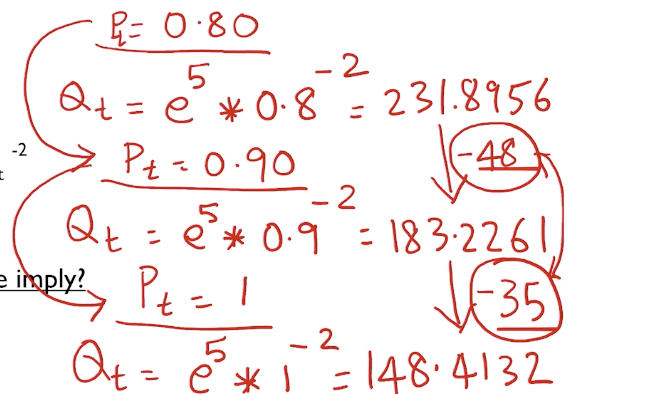 P_t = 0.80
Q_t = e^5 * 0.8^-2 = 231.8956
-48
-2
t
P_t = 0.90
Q_t = e^5 * 0.9^-2 = 183.2261
e imply?
P_t = 1
-35
Q_t = e^5 * 1^-2 = 148.4132